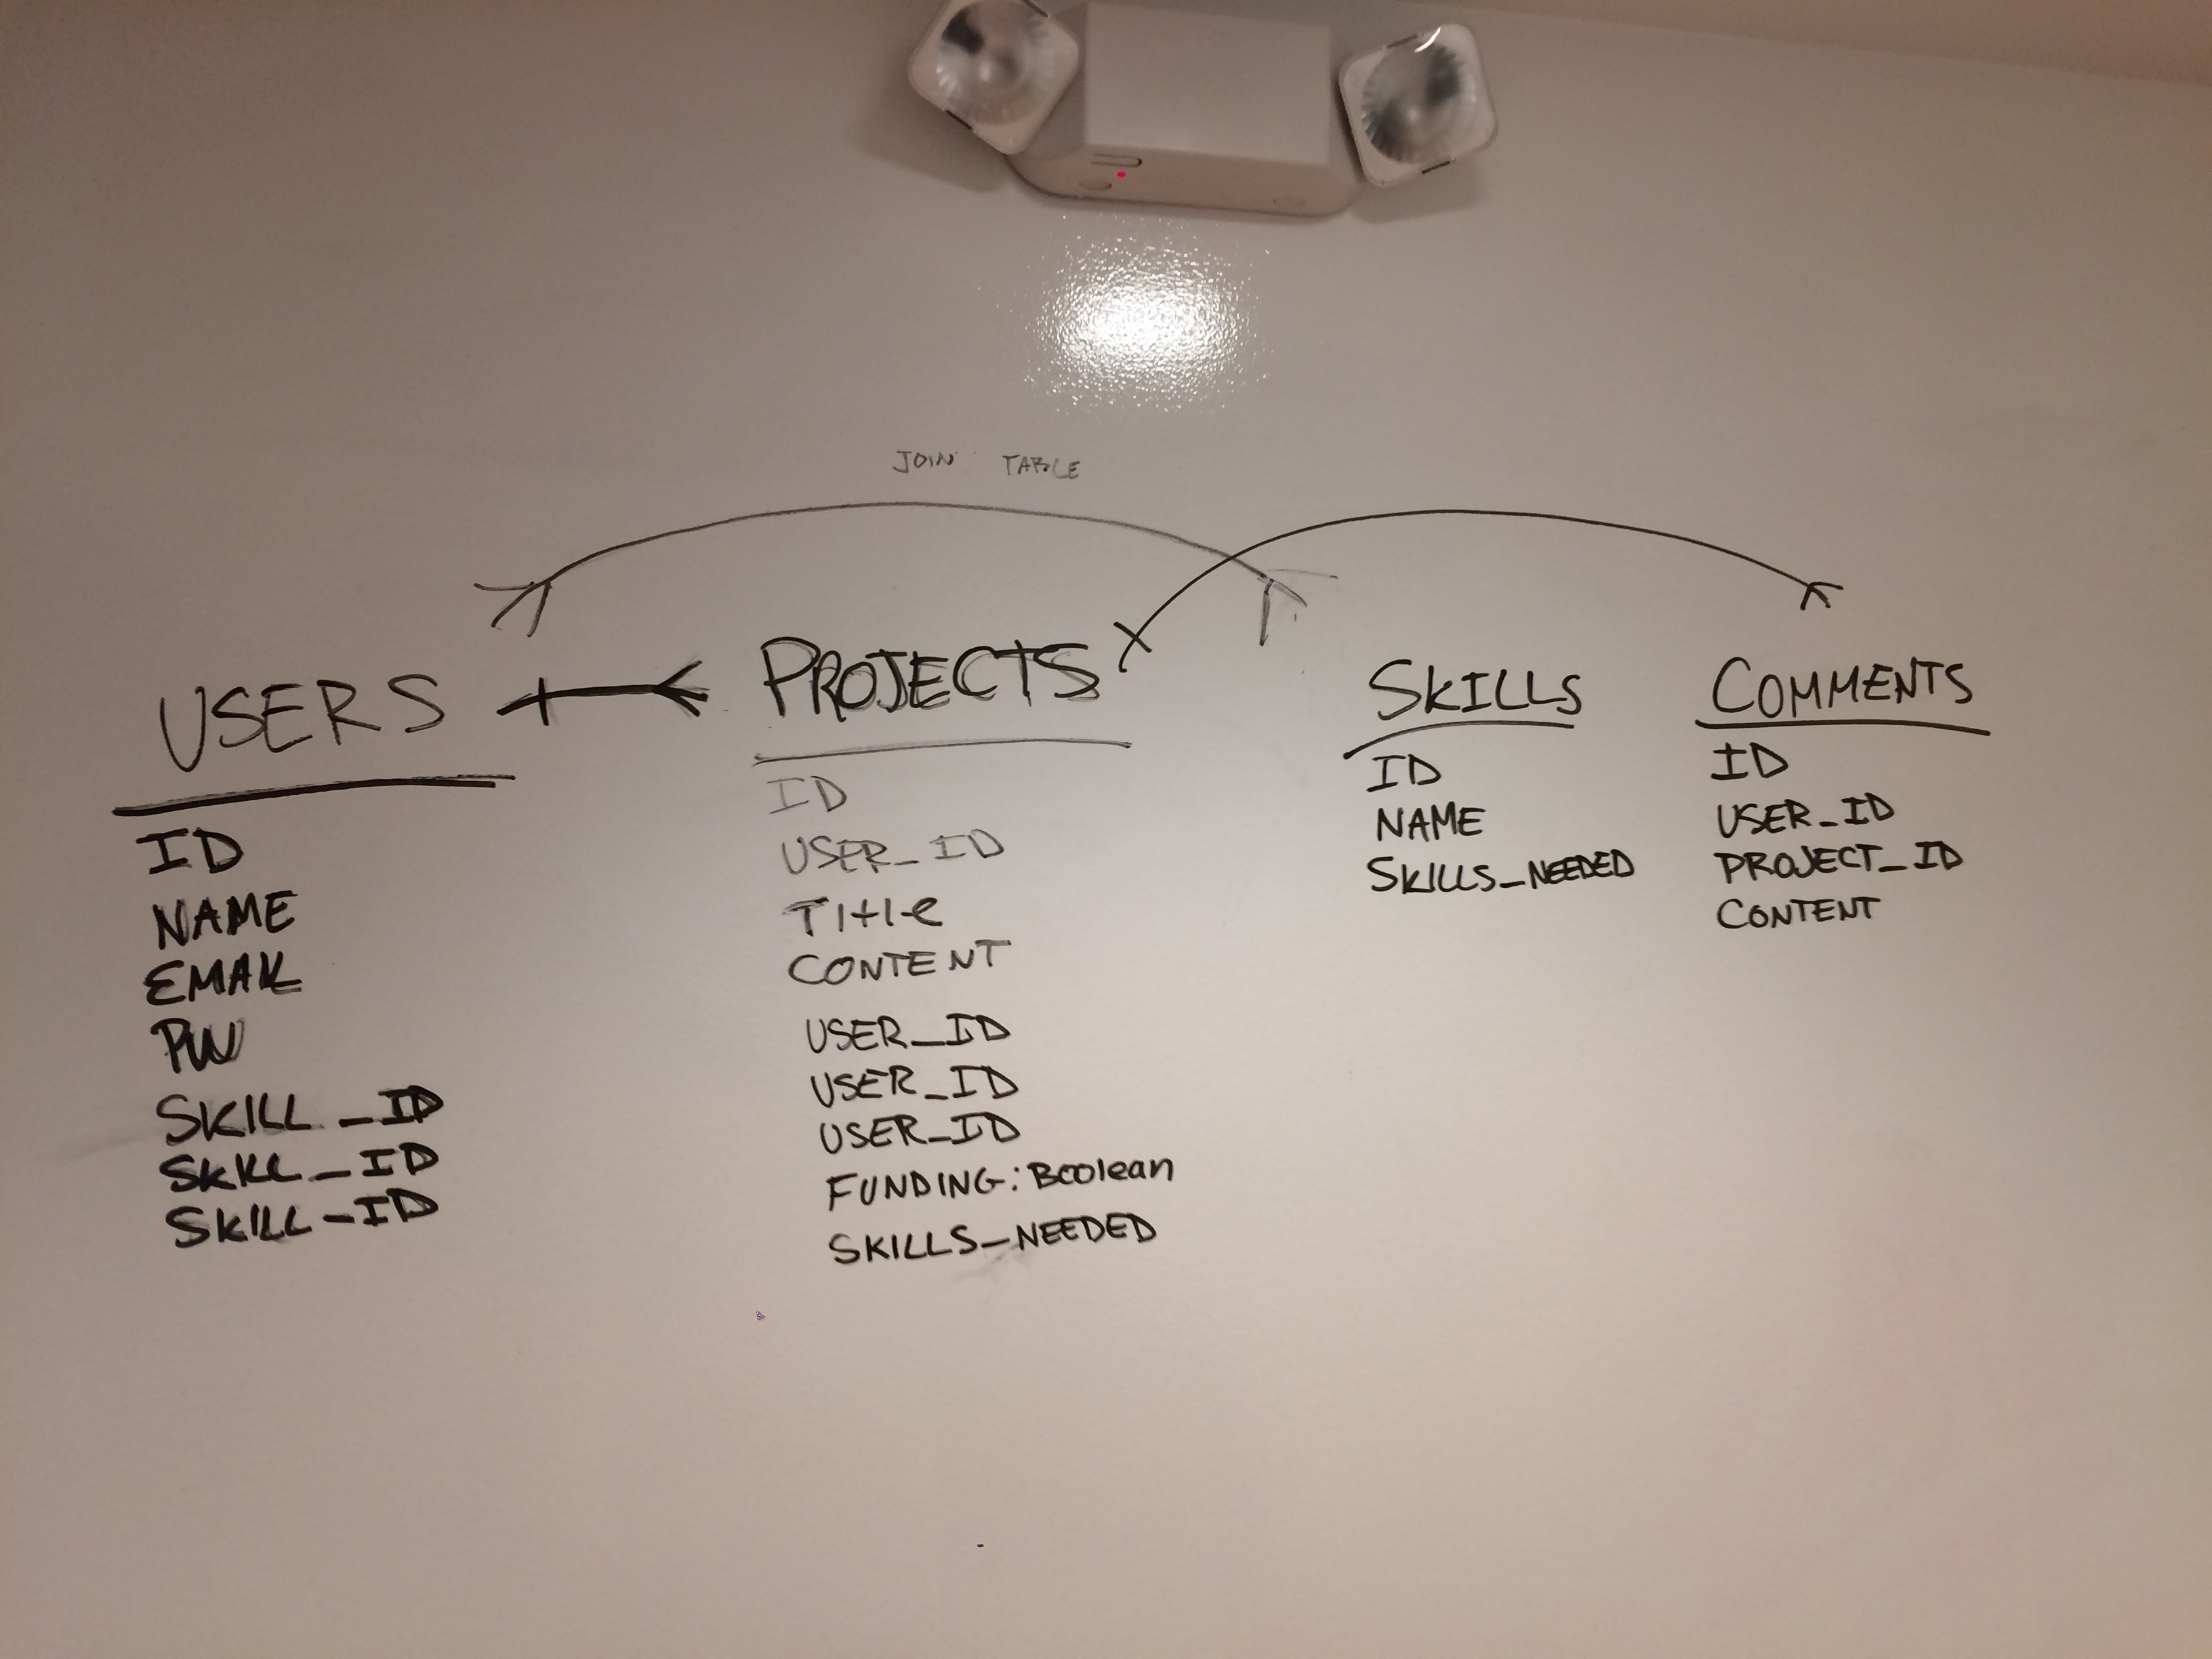 JOIN TABLE
USERS
ID
NAME
EMAIL
PW
SKILL_ID
SKILL_ID
SKILL_ID
PROJECTS
ID
USER_ID
Title
CONTENT
USER_ID
USER_ID
USER_ID
FUNDING: Boolean
SKILLS_NEEDED
SKILLS
ID
NAME
SKILLS_NEEDED
COMMENTS
ID
USER_ID
PROJECT_ID
CONTENT